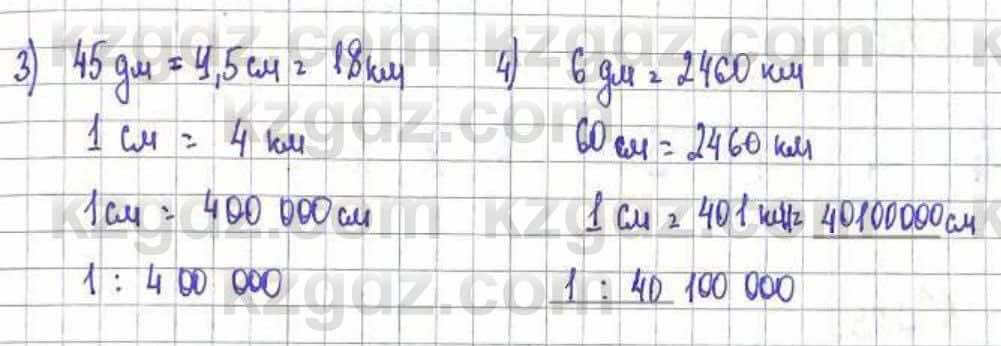 3) 45 дм = 4,5 см = 18 км
1 см = 4 км
1 см = 400 000 см
1 : 400 000
4) 6 дм = 2460 км
60 см = 2460 км
1 см = 401 км = 40100000 см
1 : 40 100 000
kzgdz.com